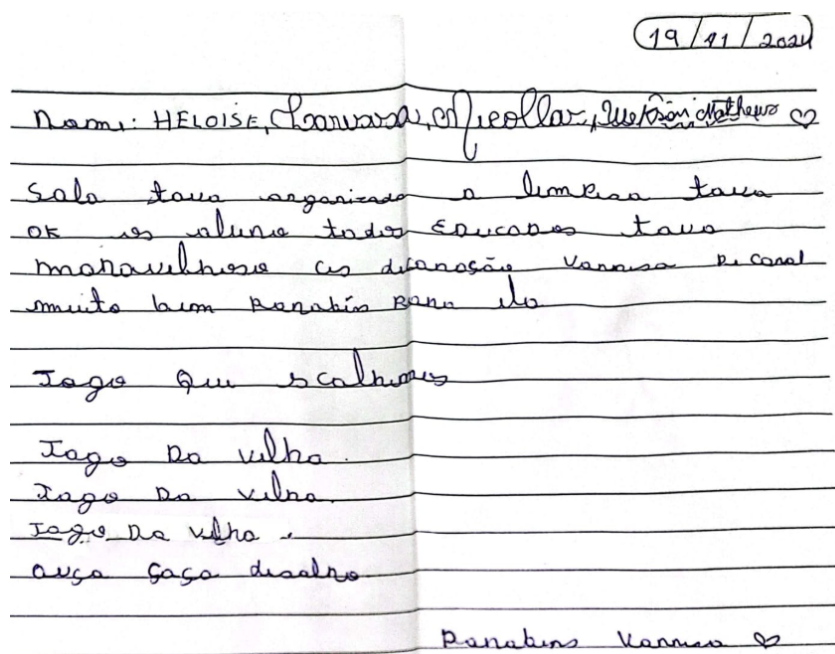 19/11/2024
Nome: HELOISE, Larissa, Nicollas, Matheus ♡
Sala tava organizada a limpesa tava
OK os aluno todos EDUCADOS tava
maravilhoso as decoração Vanussa DeCorol
muito bem Parabéns Para ela
Jogo Que scolhemos
Jogo Da velha.
Jogo Da velha.
Jogo Da velha.
ouça Faça desalho
Parabens Vanussa ♡